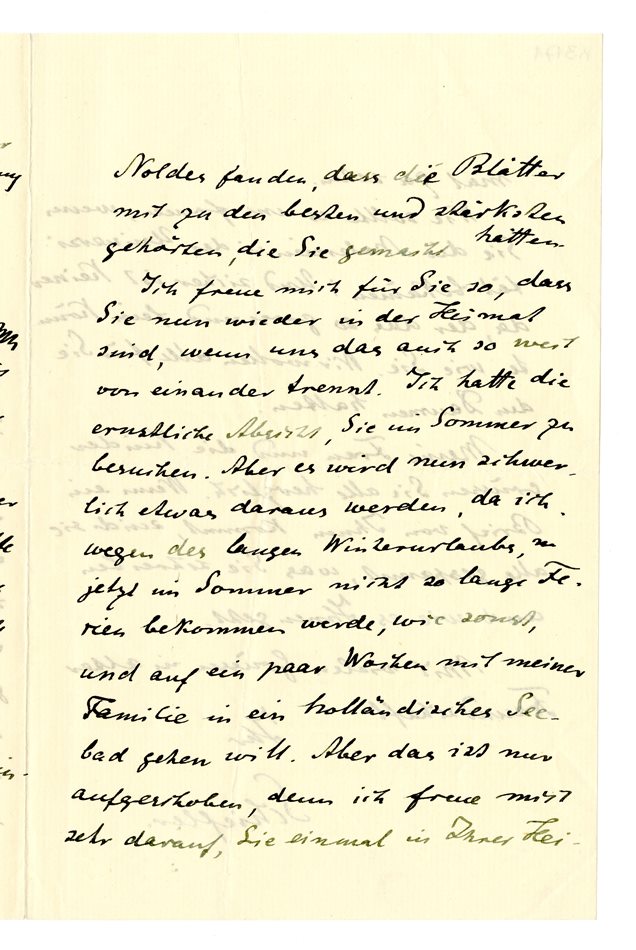 Noldes fanden, dass die Blätter
mit zu den besten und stärksten
gehörten, die Sie gemacht hätten.
Ich freue mich für Sie so, dass
Sie nun wieder in der Heimat
sind, wenn uns das auch so weit
von einander trennt. Ich hatte die
ernstliche Absicht, Sie im Sommer zu
besuchen. Aber es wird nun schwer-
lich etwas daraus werden, da ich
wegen des langen Winterurlaubs,
jetzt im Sommer nicht so lange Fe-
rien bekommen werde, wie sonst,
und auf ein paar Wochen mit meiner
Familie in ein holländisches See-
bad gehen will. Aber das ist nur
aufgeschoben, denn ich freue mich
sehr darauf, Sie einmal in Ihrer Hei-